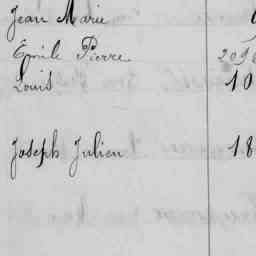 Jean Marie
Emile Pierre
Louis 10
Joseph Julien 18